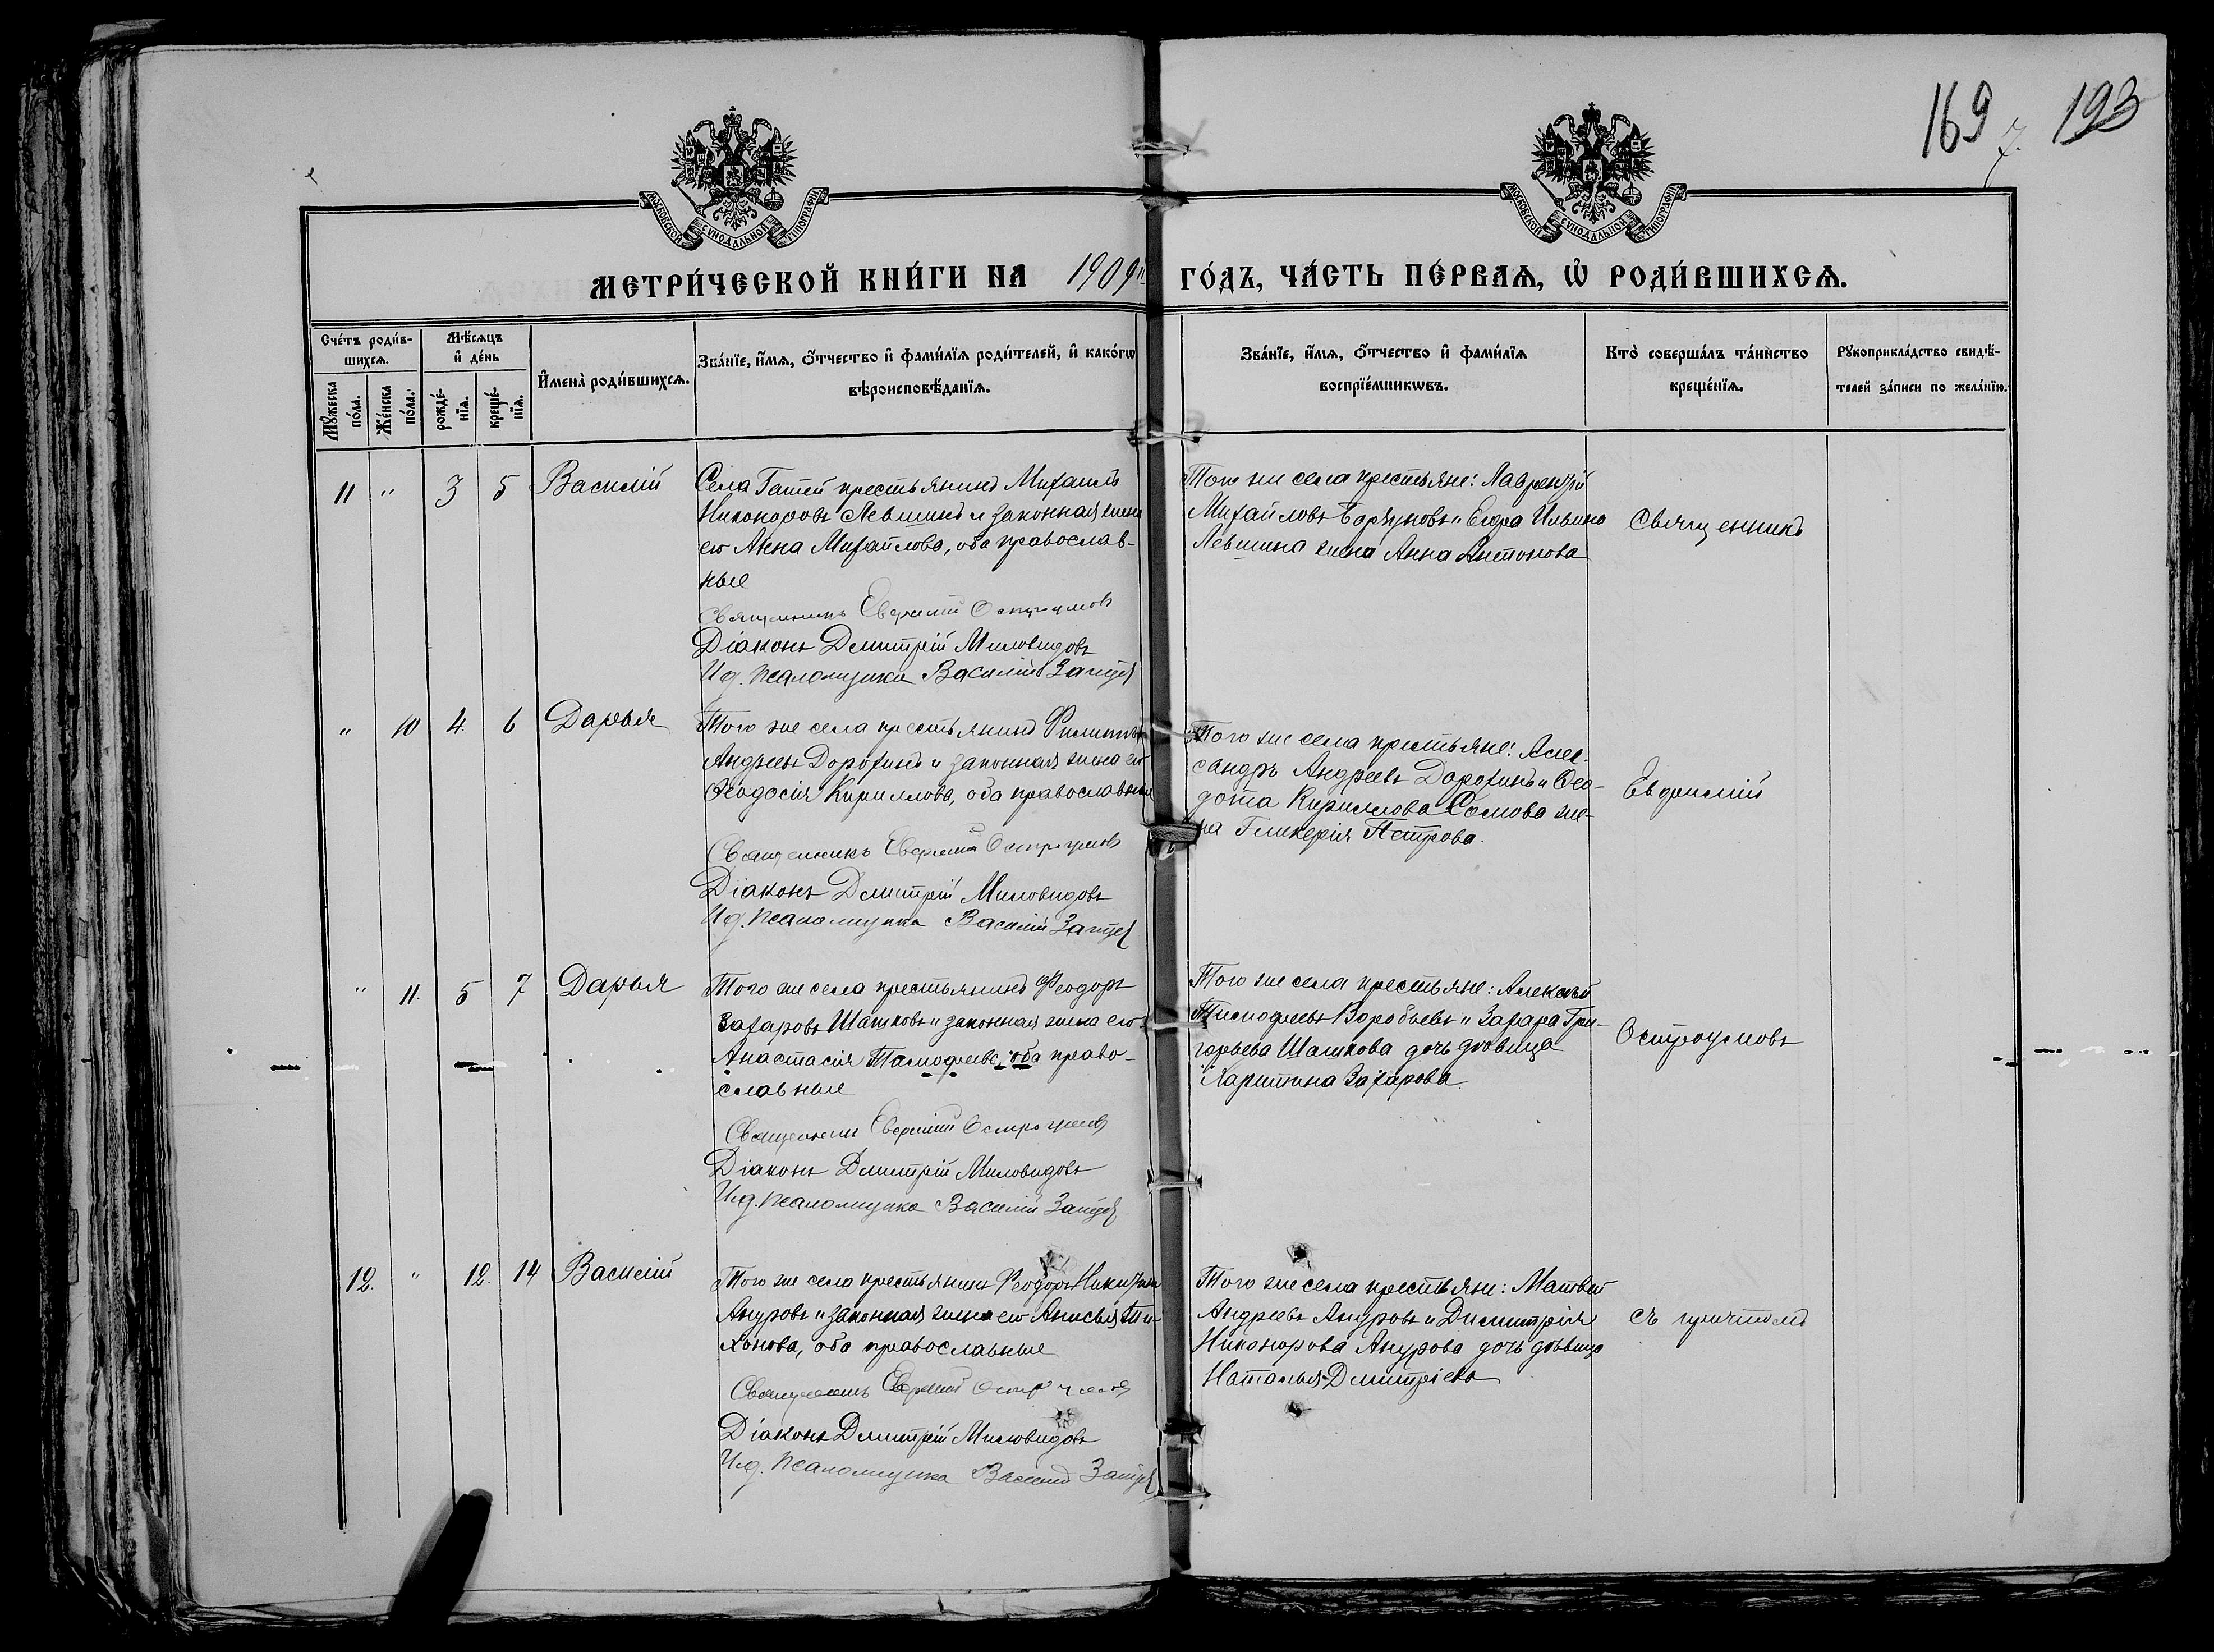 169 7. 193
МОСКОВСКОЙ СѴНОДАЛЬНОЙ ТИПОГРАФІИ
МОСКОВСКОЙ СѴНОДАЛЬНОЙ ТИПОГРАФІИ
МЕТРИ́ЧЕСКОЙ КНИ́ГИ НА 1909 ГО́ДЪ, ЧА́СТЬ ПЕ́РВАѦ, Ѡ РОДИ́ВШИХСѦ.
Сче́тъ роди́в-
шихсѧ.
Мꙋ́жеска
по́ла.
Же́нска
по́ла.
Мѣ́сѧцъ
и҆ де́нь
рожде́-
нїѧ.
креще́-
нїѧ.
И҆мена̀ роди́вшихсѧ.
Зва́нїе, и҆́мѧ, ѻ҆́тчество и҆ фами́лїѧ роди́телей, и҆ како́гѡ
вѣроисповѣ́данїѧ.
Зва́нїе, и҆́мѧ, ѻ҆́тчество и҆ фами́лїѧ
воспрїе́мникѡвъ.
Кто̀ соверша́лъ та́инство
креще́нїѧ.
Рꙋкоприкла́дство свидѣ́-
телей за́писи по жела́нїю.
11 " 3 5 Василій
Села Гатей крестьянинъ Михаилъ
Никоноровъ Левшинъ и законная жена
его Анна Михайлова, оба православ-
ные
Священникъ Евфимій Остроумовъ
Діаконъ Дмитрій Миловидовъ
И.д. псаломщика Василій
Того же села крестьяне: Лаврентій
Михайловъ и Егора Ильина
Левшина жена Анна Антонова
Священникъ
" 10 4. 6 Дарья
Того же села крестьянинъ Филиппъ
Андреевъ Дорохинъ и законная жена его
Ѳеодосія Кириллова, оба православные
Священникъ Евфимій Остроумовъ
Діаконъ Дмитрій Миловидовъ
И.д. псаломщика Василій
Того же села крестьяне: Алек-
сандръ Андреевъ Дорохинъ и Ѳео-
дота Кириллова Сомова же-
на Гликерія Петрова.
Евфимій
" 11. 5 7 Дарья
Того же села крестьянинъ Ѳеодоръ
Захаровъ Шашковъ и законная жена его
Анастасія Тимофеева, оба право-
славные
Священникъ Евфимій Остроумовъ
Діаконъ Дмитрій Миловидовъ
И.д. псаломщика Василій
Того же села крестьяне: Алексѣй
Тимофеевъ Воробьевъ и Захара Гри-
горьева Шашкова дочь дѣвица
Харитина Захарова.
Остроумовъ
12. " 12. 14 Василій
Того же села крестьянинъ Ѳеодоръ
Ануровъ и законная жена его Анисья Ти-
хонова, оба православные
Священникъ Евфимій Остроумовъ
Діаконъ Дмитрій Миловидовъ
И.д. псаломщика Василій
Того же села крестьяне: Матвей
Андреевъ Ануровъ и Димитрія
Никонорова Анурова дочь дѣвица
Наталья Дмитріева
съ причтомъ